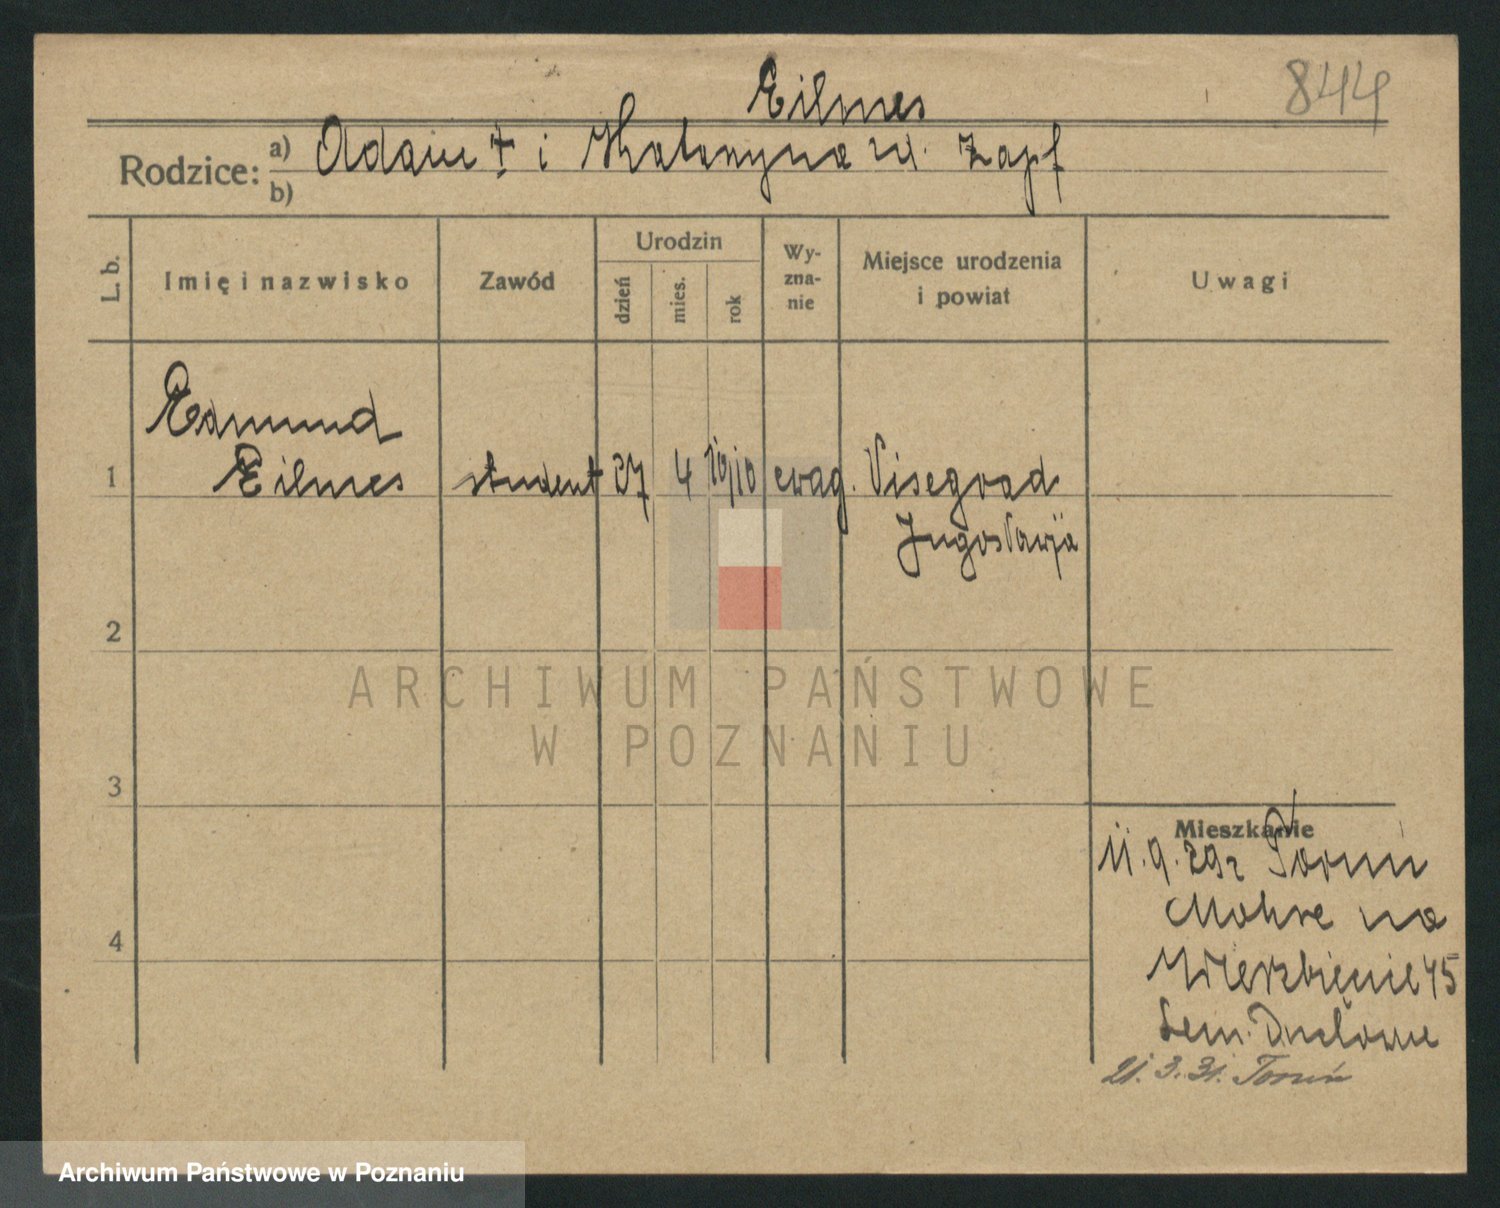 844
Eilmes
Rodzice: a) Adam † i Katarzyna ur. Zapf
b)
L. b. Imię i nazwisko Zawód Urodzin Wy- Miejsce urodzenia Uwagi
dzień mies. rok zna- i powiat
nie
Edmund
1 Eilmes student 27 4 1910 ewag. Visegrad
Jugosławja
2
ARCHIWUM PAŃSTWOWE
W POZNANIU
3
Mieszkanie
11.9.29 z Toruń
na
4 Wierzbięcie 45
Sem. Duchowne
21.3.31. Toruń
Archiwum Państwowe w Poznaniu